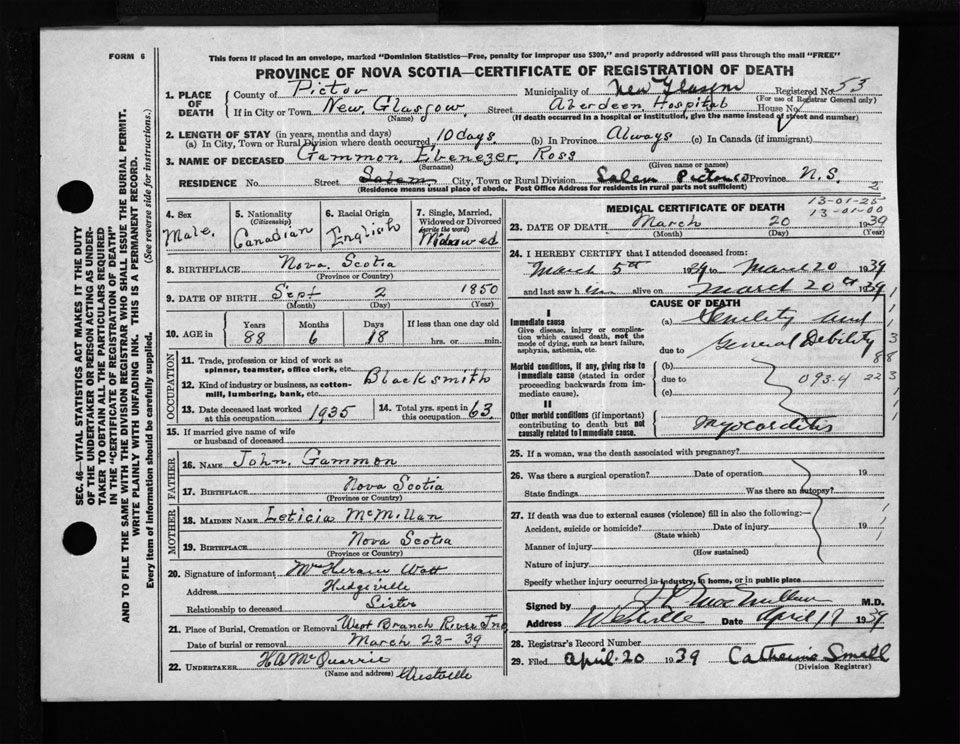 FORM 6
This form if placed in an envelope, marked "Dominion Statistics—Free, penalty for improper use $300," and properly addressed will pass through the mail "FREE"
PROVINCE OF NOVA SCOTIA—CERTIFICATE OF REGISTRATION OF DEATH
1. PLACE OF DEATH County of Pictou Municipality of New Glasgow Registered No 53
(For use of Registrar General only)
If in City or Town New Glasgow Street Aberdeen Hospital House No.
(Name) (If death occurred in a hospital or institution, give the name instead of street and number)
2. LENGTH OF STAY (in years, months and days)
(a) In City, Town or Rural Division where death occurred 10 days (b) In Province Always (c) In Canada (if immigrant)
3. NAME OF DECEASED Gammon, Ebenezer, Ross
(Surname) (Given name or names)
RESIDENCE No. Street Salem City, Town or Rural Division Salem Pictou Co Province N.S.
(Residence means usual place of abode. Post Office Address for residents in rural parts not sufficient)
2
4. Sex Male
5. Nationality (Citizenship) Canadian
6. Racial Origin English
7. Single, Married, Widowed or Divorced (write the word) Widowed
8. BIRTHPLACE Nova Scotia
(Province or Country)
9. DATE OF BIRTH Sept 2 1850
(Month) (Day) (Year)
10. AGE in Years 88 Months 6 Days 18 If less than one day old hrs. or min.
OCCUPATION
11. Trade, profession or kind of work as spinner, teamster, office clerk, etc.
12. Kind of industry or business, as cotton-mill, lumbering, bank, etc. Blacksmith
13. Date deceased last worked at this occupation 1935
14. Total yrs. spent in this occupation 63
15. If married give name of wife or husband of deceased
FATHER
16. NAME John Gammon
17. BIRTHPLACE Nova Scotia
(Province or Country)
MOTHER
18. MAIDEN NAME Leticia McMillan
19. BIRTHPLACE Nova Scotia
(Province or Country)
20. Signature of informant Hiram Watt
Address Hedgeville
Relationship to deceased Sister
21. Place of Burial, Cremation or Removal West Branch River Jno
Date of burial or removal March 23-39
22. UNDERTAKER H A McQuarrie
(Name and address) Westville
MEDICAL CERTIFICATE OF DEATH
13-01-25
13-01-00
23. DATE OF DEATH March 20 1939
(Month) (Day) (Year)
24. I HEREBY CERTIFY that I attended deceased from:
March 5th 1939 to March 20 1939
and last saw him alive on March 20th 1939
CAUSE OF DEATH
I
Immediate cause
Give disease, injury or complication which caused death, not the mode of dying, such as heart failure, asphyxia, asthenia, etc.
(a) Senility and
due to General Debility
Morbid conditions, if any, giving rise to immediate cause (stated in order proceeding backwards from immediate cause)
(b)
due to
(c)
093-4
II
Other morbid conditions (if important) contributing to death but not causally related to immediate cause.
Myocarditis
25. If a woman, was the death associated with pregnancy?
26. Was there a surgical operation? Date of operation 19
State findings Was there an autopsy?
27. If death was due to external causes (violence) fill in also the following:—
Accident, suicide or homicide? Date of injury 19
(State which)
Manner of injury
(How sustained)
Nature of injury
Specify whether injury occurred in industry, in home, or in public place
Signed by M.D.
Address Westville Date April 19 1939
28. Registrar's Record Number
29. Filed April. 20 1939 Catherine Small
(Division Registrar)
SEC. 46—VITAL STATISTICS ACT MAKES IT THE DUTY
OF THE UNDERTAKER OR PERSON ACTING AS UNDER-
TAKER TO OBTAIN ALL THE PARTICULARS REQUIRED
IN THE "CERTIFICATE OF REGISTRATION OF DEATH"
AND TO FILE THE SAME WITH THE DIVISION REGISTRAR WHO SHALL ISSUE THE BURIAL PERMIT.
WRITE PLAINLY WITH UNFADING INK. THIS IS A PERMANENT RECORD.
Every item of information should be carefully supplied. (See reverse side for instructions.)